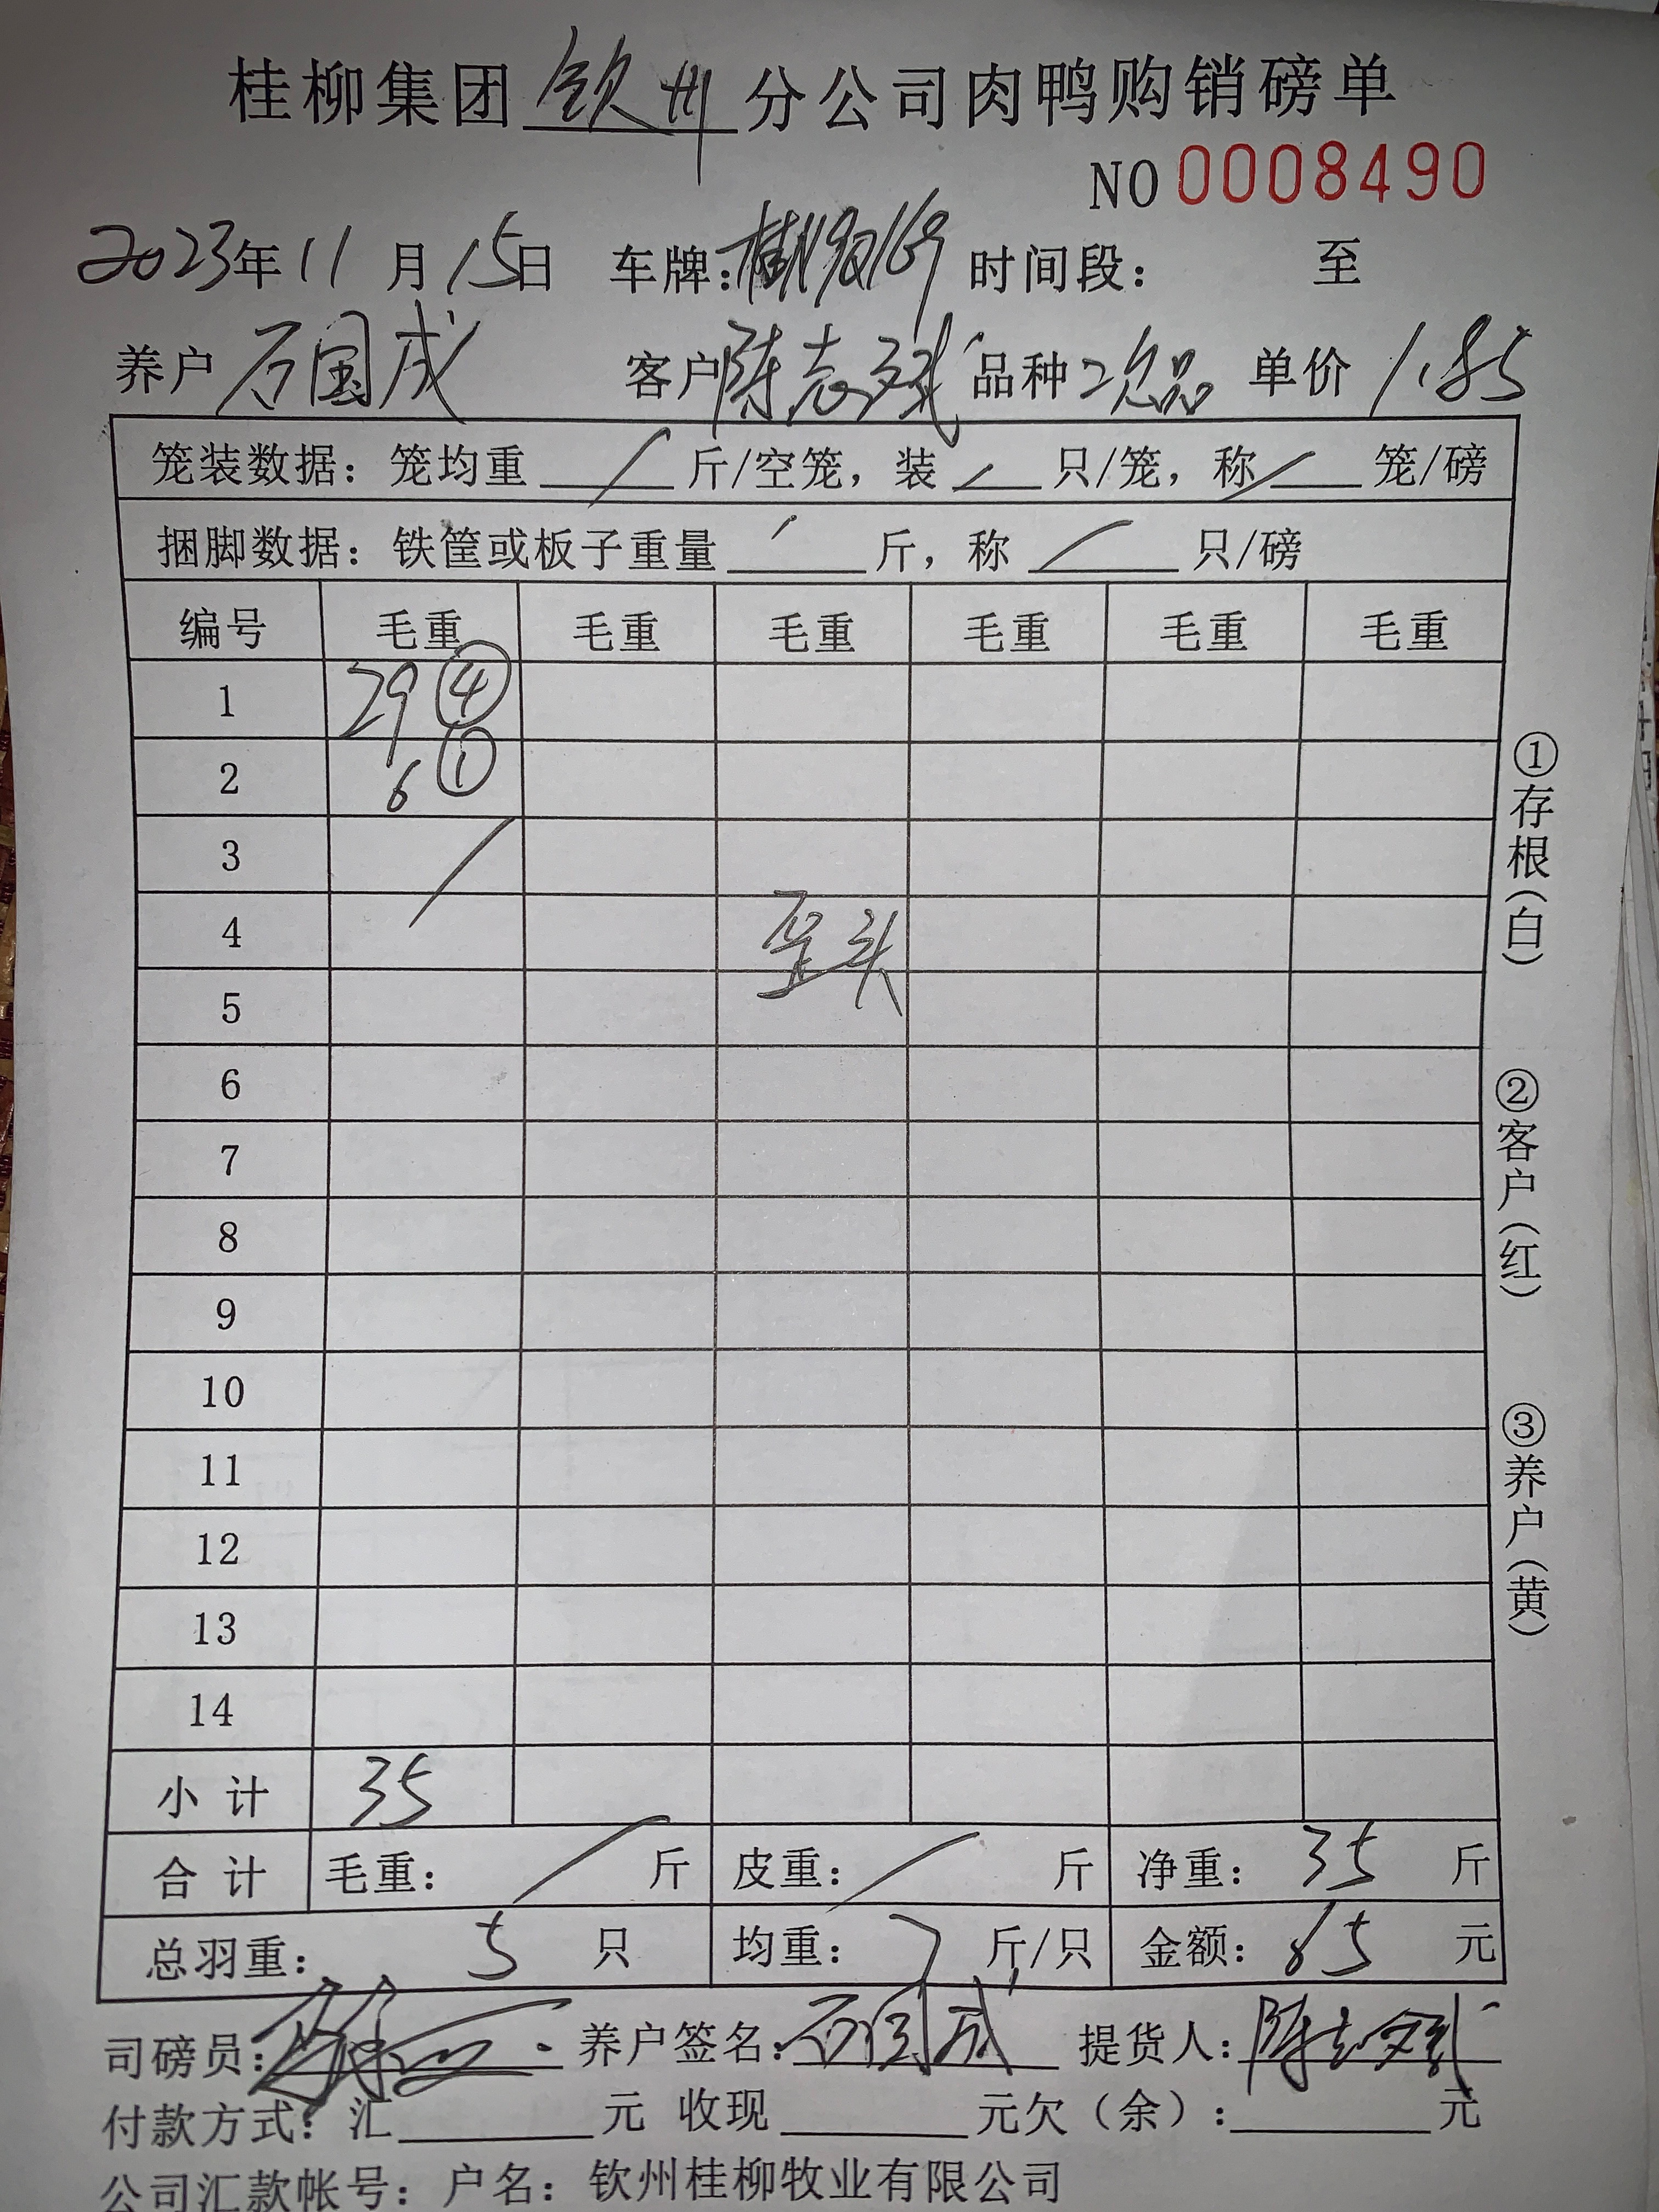 桂柳集团钦州分公司肉鸭购销磅单
NO 0008490
2023年11月15日 车牌: 时间段: 至
养户 石国成 客户 陈志斌 品种 次品 单价 1.85
笼装数据: 笼均重 / 斤/空笼, 装 / 只/笼, 称 / 笼/磅
捆脚数据: 铁筐或板子重量 / 斤, 称 / 只/磅
编号 毛重 毛重 毛重 毛重 毛重 毛重
1 29 ④
2 6 ①
3 /
4 歪头
5
6
7
8
9
10
11
12
13
14
小计 35
合计 毛重: / 斤 皮重: / 斤 净重: 35 斤
总羽重: 5 只 均重: 7 斤/只 金额: 65 元
司磅员: 养户签名: 石国成 提货人: 陈志斌
付款方式: 汇 元 收现 元欠(余): 元
公司汇款帐号: 户名: 钦州桂柳牧业有限公司
①存根(白)
②客户(红)
③养户(黄)